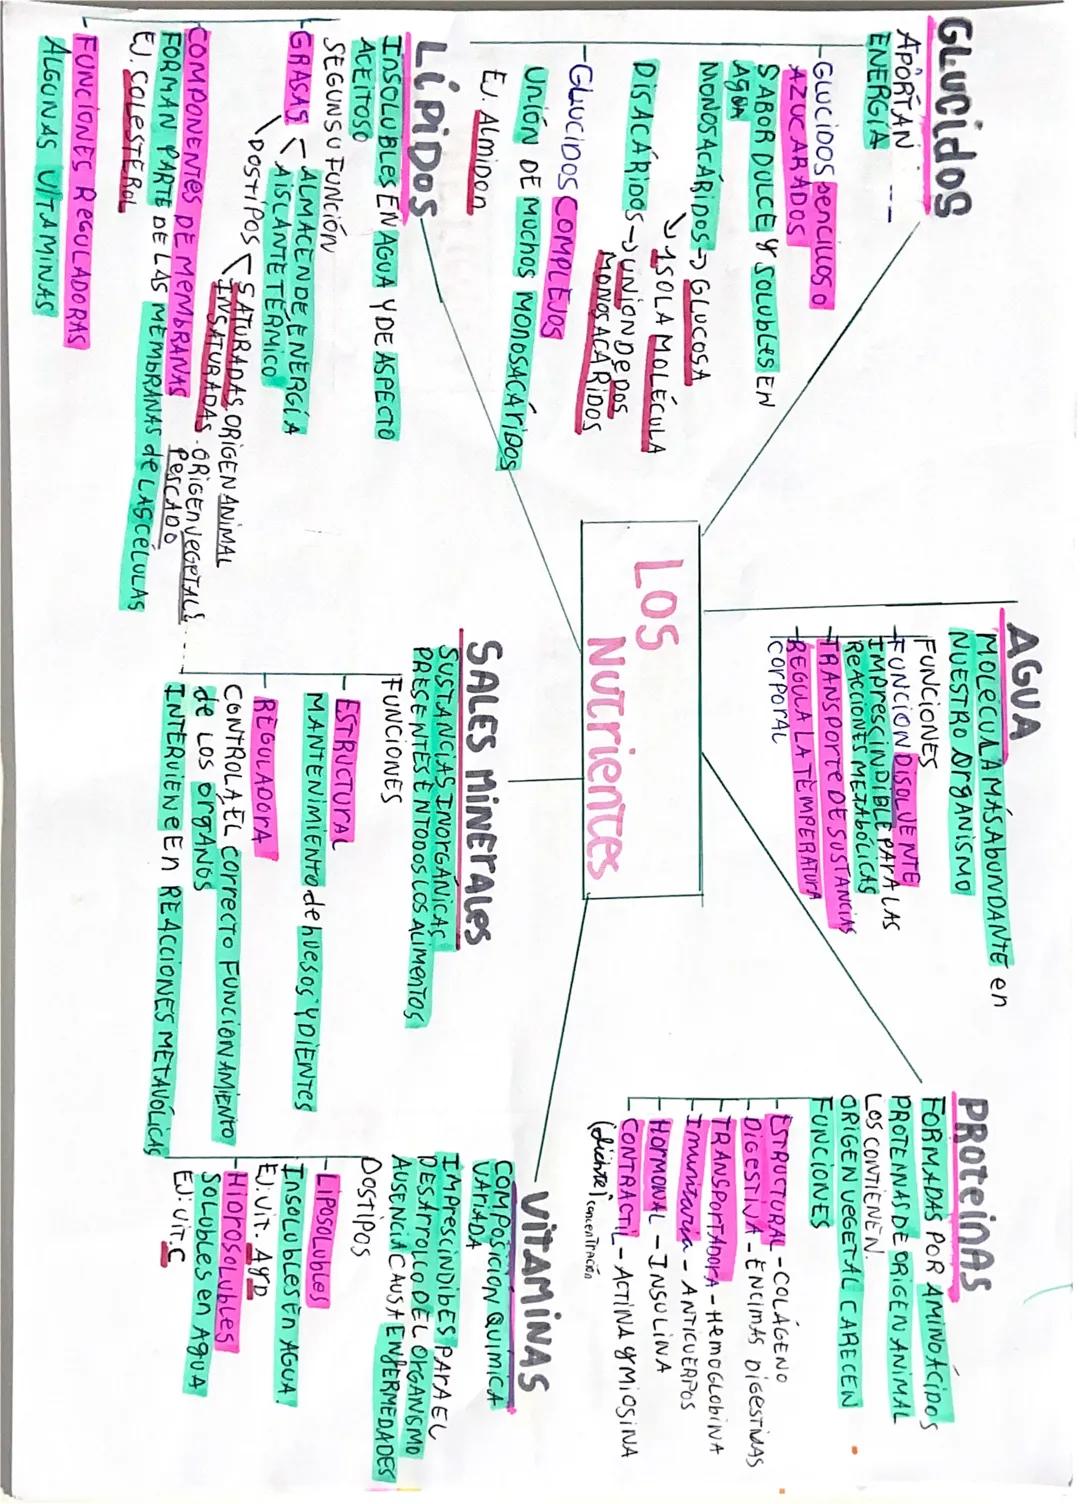 LOS
Nutrientes
GLUCIDOS
APORTAN
ENERGÍA
GLUCIDOS SENCILLOS O
AZUCARADOS
SABOR DULCE Y SOLUBLES EN
AGUA
MONOSACÁRIDOS → GLUCOSA
↘ 1 SOLA MOLÉCULA
DISACÁRIDOS → UNION DE DOS
MONOSACÁRIDOS
- GLUCIDOS COMPLEJOS
UNIÓN DE MUCHOS MONOSSACÁRIDOS
EJ. Almidon
AGUA
MOLECULA MÁS AbUNDANTE en
NUESTRO Organismo
FUNCIONES
FUNCIÓN DISOLVENTE
IMPRESCINDIBLE PARA LAS
REACCIONES METABÓLICAS
TRANSPORTE DE SUSTANCIAS
REGULA LA TEMPERATURA
CORPORAL
PROTEINAS
FORMADAS POR AMINOÁCIDOS
PROTEINAS DE ORIGEN ANIMAL
LOS CONTIENEN.
ORIGEN VEGETAL CARECEN
FUNCIONES
ESTRUCTURAL - COLÁGENO
DIGESTIVA - ENCIMAS DIGESTIVAS
TRANSPORTADORA - HEMOGLOBINA
Inmunitaria - ANTICUERPOS
HORMONAL - INSULINA
CONTRACTIL - ACTINA Y MIOSINA
concentración
LÍPIDOS
INSOLUBLES EN AGUA Y DE ASPECTO
ACEITOSO
SEGUN SU FUNCIÓN
GRASAS < ALMACEN DE ENERGÍA
AISLANTE TÉRMICO
DOS TIPOS < SATURADAS. ORIGEN ANIMAL
INSATURADAS. ORIGEN VEGETAL Y
PESCADO
COMPONENTES DE MEMBRANAS
FORMAN PARTE DE LAS MEMBRANAS de LAS CÉLULAS
EJ. COLESTEROL
FUNCIONES REGULADORAS
ALGUNAS VITAMINAS
SALES MINERALES
SUSTANCIAS INORGÁNICAS
PRESENTES EN TODOS LOS ALIMENTOS
FUNCIONES
ESTRUCTURAL
MANTENIMIENTO de huesos Y DIENTES
REGULADORA
CONTROLA EL CORRECTO FUNCIONAMIENTO
de LOS ORGANOS
INTERVIENE EN REACCIONES METAVÓLICAS
VITAMINAS
COMPOSICIÓN QUÍMICA
VARIADA
IMPRESCINDIBES PARA EL
DESARROLLO DEL ORGANISMO
AUSENCIA CAUSA ENFERMEDADES
DOS TIPOS
- LIPOSOLUBLES
INSOLUBLES EN AGUA.
EJ. VIT. A y D
- HIDROSOLUBLES
SOLUBLES en AGUA
EJ. VIT. C